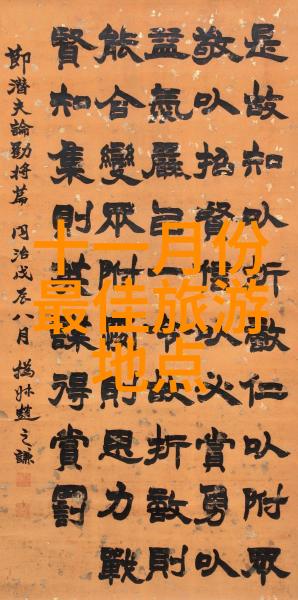 是故知以折敵仁以附眾
敬以招賢信以必賞勇以
益氣嚴㠯一令故折敵則
能合變眾附則思力戰
賢知集則英謀得賞罰
節潛夫論勸將篇 同治戊辰八月 撝叔趙之謙
十一月份
最佳旅游
地点